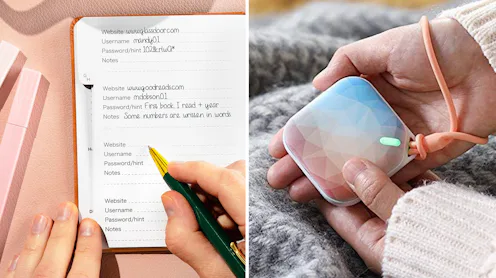 Website www.gladdoor.com
Username mandy01
Password/hint
Notes
Website www.goodreads.com
Username mdobson01
Password/hint First book I read + year
Notes Some numbers are written in words
Website
Username
Password/hint
Notes
Website
Username
Password/hint
Notes